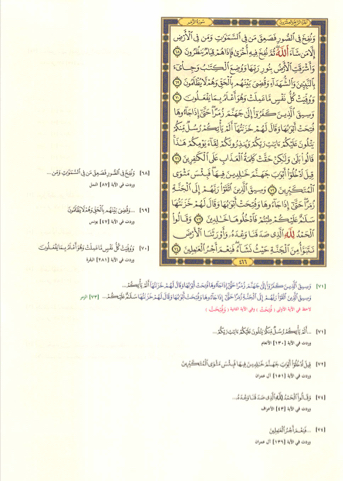 وَنُفِخَ فِي الصُّورِ فَصَعِقَ مَن فِي السَّمَاوَاتِ وَمَن فِي الْأَرْضِ
إِلَّا مَن شَاءَ اللَّهُ ثُمَّ نُفِخَ فِيهِ أُخْرَىٰ فَإِذَا هُمْ قِيَامٌ يَنظُرُونَ ٦٨
وَأَشْرَقَتِ الْأَرْضُ بِنُورِ رَبِّهَا وَوُضِعَ الْكِتَابُ وَجِاْىءَ
بِالنَّبِيِّينَ وَالشُّهَدَاءِ وَقُضِيَ بَيْنَهُم بِالْحَقِّ وَهُمْ لَا يُظْلَمُونَ ٦٩
وَوُفِّيَتْ كُلُّ نَفْسٍ مَّا عَمِلَتْ وَهُوَ أَعْلَمُ بِمَا يَفْعَلُونَ ٧٠
وَسِيقَ الَّذِينَ كَفَرُوا إِلَىٰ جَهَنَّمَ زُمَرًا حَتَّىٰ إِذَا جَاءُوهَا
فُتِحَتْ أَبْوَابُهَا وَقَالَ لَهُمْ خَزَنَتُهَا أَلَمْ يَأْتِكُمْ رُسُلٌ مِّنكُمْ
يَتْلُونَ عَلَيْكُمْ آيَاتِ رَبِّكُمْ وَيُنذِرُونَكُمْ لِقَاءَ يَوْمِكُمْ هَٰذَا
قَالُوا بَلَىٰ وَلَٰكِنْ حَقَّتْ كَلِمَةُ الْعَذَابِ عَلَى الْكَافِرِينَ ٧١
قِيلَ ادْخُلُوا أَبْوَابَ جَهَنَّمَ خَالِدِينَ فِيهَا فَبِئْسَ مَثْوَى
الْمُتَكَبِّرِينَ ٧٢ وَسِيقَ الَّذِينَ اتَّقَوْا رَبَّهُمْ إِلَى الْجَنَّةِ
زُمَرًا حَتَّىٰ إِذَا جَاءُوهَا وَفُتِحَتْ أَبْوَابُهَا وَقَالَ لَهُمْ خَزَنَتُهَا
سَلَامٌ عَلَيْكُمْ طِبْتُمْ فَادْخُلُوهَا خَالِدِينَ ٧٣ وَقَالُوا
الْحَمْدُ لِلَّهِ الَّذِي صَدَقَنَا وَعْدَهُ وَأَوْرَثَنَا الْأَرْضَ
نَتَبَوَّأُ مِنَ الْجَنَّةِ حَيْثُ نَشَاءُ فَنِعْمَ أَجْرُ الْعَامِلِينَ ٧٤
٤٦٦
[٦٨] وَنُفِخَ فِي الصُّورِ فَصَعِقَ مَن فِي السَّمَاوَاتِ وَمَن...
وردت في الآية [٨٧] النمل
[٦٩] ...وَقُضِيَ بَيْنَهُم بِالْحَقِّ وَهُمْ لَا يُظْلَمُونَ
وردت في الآية [٥٤] يونس
[٧٠] وَوُفِّيَتْ كُلُّ نَفْسٍ مَّا عَمِلَتْ وَهُوَ أَعْلَمُ بِمَا يَفْعَلُونَ
وردت في الآية [٢٨١] البقرة
[٧١] وَسِيقَ الَّذِينَ كَفَرُوا إِلَىٰ جَهَنَّمَ زُمَرًا حَتَّىٰ إِذَا جَاءُوهَا فُتِحَتْ أَبْوَابُهَا وَقَالَ لَهُمْ خَزَنَتُهَا أَلَمْ يَأْتِكُمْ...
وَسِيقَ الَّذِينَ اتَّقَوْا رَبَّهُمْ إِلَى الْجَنَّةِ زُمَرًا حَتَّىٰ إِذَا جَاءُوهَا وَفُتِحَتْ أَبْوَابُهَا وَقَالَ لَهُمْ خَزَنَتُهَا سَلَامٌ عَلَيْكُمْ... [٧٣] الزمر
لاحظ في الآية الأولى ( فُتِحَتْ ) وفي الآية الثانية ( وَفُتِحَتْ )
[٧١] ...أَلَمْ يَأْتِكُمْ رُسُلٌ مِّنكُمْ يَتْلُونَ عَلَيْكُمْ آيَاتِ رَبِّكُمْ...
وردت في الآية [١٣٠] الأنعام
[٧٢] قِيلَ ادْخُلُوا أَبْوَابَ جَهَنَّمَ خَالِدِينَ فِيهَا فَبِئْسَ مَثْوَى الْمُتَكَبِّرِينَ
وردت في الآية [١٥١] آل عمران
[٧٤] وَقَالُوا الْحَمْدُ لِلَّهِ الَّذِي صَدَقَنَا وَعْدَهُ...
وردت في الآية [٤٣] الأعراف
[٧٤] ...فَنِعْمَ أَجْرُ الْعَامِلِينَ
وردت في الآية [١٣٦] آل عمران